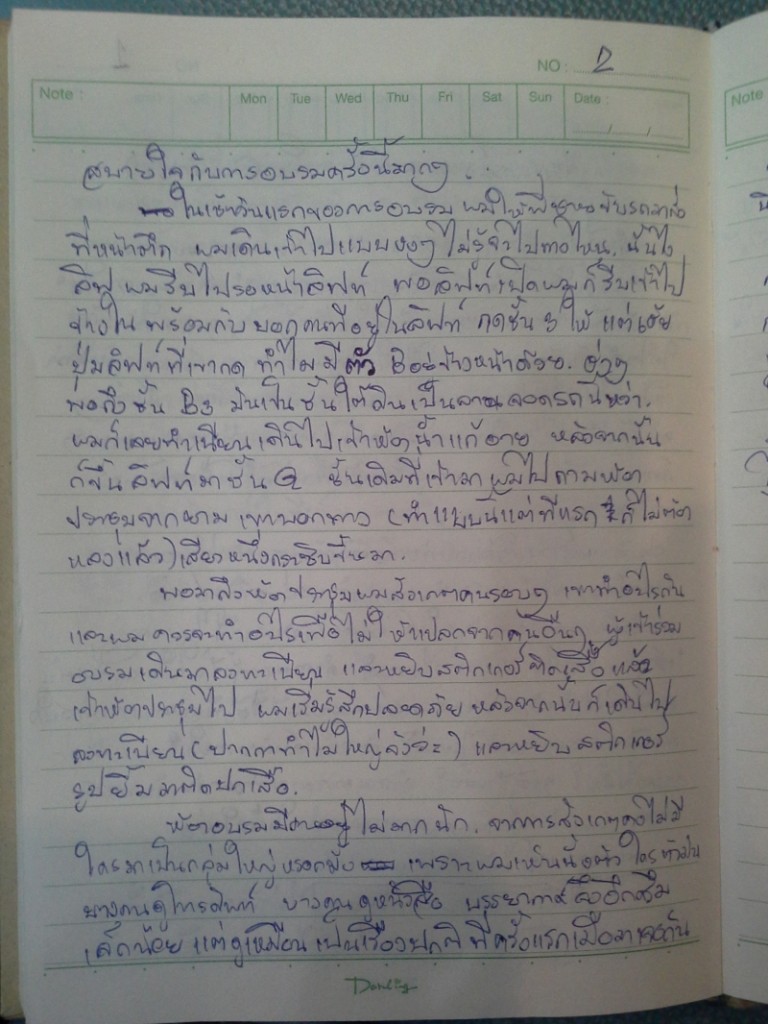 NO : 2
Note : Mon Tue Wed Thu Fri Sat Sun Date :
สบายใจกับการอบรมครั้งนี้มากๆ . .
ในเช้าวันแรกของการอบรม ผมให้พี่ขับรถมาส่ง
ที่หน้าตึก ผมเดินเข้าไปแบบงงๆ ไม่รู้จะไปทางไหน. นั้นไง
ลิฟ ผมรีบไปรอหน้าลิฟท์ พอลิฟท์เปิดผมก็รีบเข้าไป
ข้างใน พร้อมกับบอกคนที่อยู่ในลิฟท์ กดชั้น 3 ให้ แต่เอ๊ย
ปุ่มลิฟท์ที่เขากด ทำไมมีตัว B อยู่ข้างหน้าด้วย.
พอถึงชั้น B3 มันเป็นชั้นใต้ดินเป็นลานจอดรถนี่หว่า.
ผมก็เลยทำเนียนเดินไปเข้าห้องน้ำแก้อาย หลังจากนั้น
ก็ขึ้นลิฟท์มาชั้น G ชั้นเดิมที่เข้ามา ผมไปถามห้อง
ประชุมจากยาม เขาบอกทาง (ทำแบบนี้แต่ทีแรก ก็ไม่ต้อง
หลงแล้ว) เสียงหนึ่งกระซิบขึ้นมา.
พอมาถึงห้องประชุมผมสังเกตคนรอบๆ เขาทำอะไรกัน
และผมควรจะทำอะไรเพื่อไม่ให้แปลกจากคนอื่นๆ. ผู้เข้าร่วม
อบรมเดินมาลงทะเบียน และหยิบสติกเกอร์ติดเสื้อ แล้ว
เข้าห้องประชุมไป ผมเริ่มรู้สึกปลอดภัย หลังจากนั้นก็เดินไป
ลงทะเบียน (ปากกาทำไมใหญ่จังว่ะ) และหยิบสติกเกอร์
รูปยิ้มมาติดปกเสื้อ.
ห้องอบรมมีคนอยู่ไม่มากนัก. จากการสังเกตคงไม่มี
ใครมาเป็นกลุ่มใหญ่หรอกมั้ง เพราะผมเห็นนั่งตัวใครตัวมัน
บางคนดูโทรศัพท์ บางคนดูหนังสือ บรรยากาศจึงอึกซึม
เล็กน้อย แต่ดูเหมือนเป็นเรื่องปกติ ที่ครั้งแรกเมื่อมาเจอกัน
Darling
Note